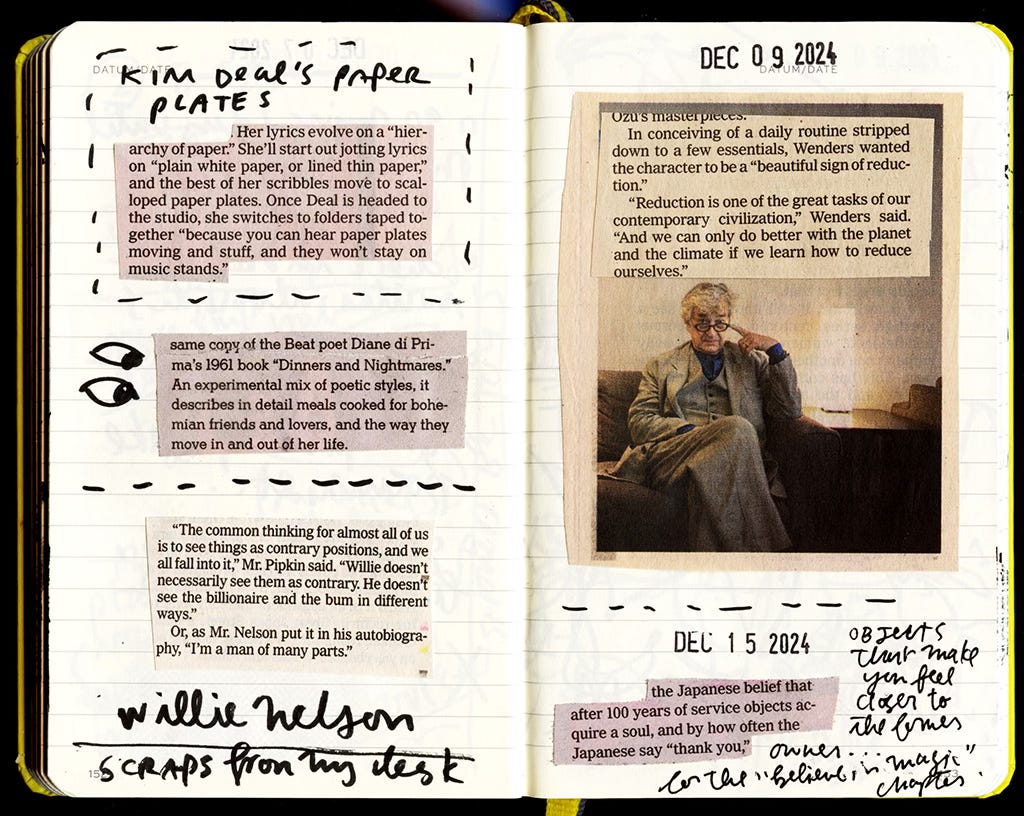 DATUM/DATE
KIM DEAL'S PAPER
PLATES
Her lyrics evolve on a “hier-
archy of paper.” She’ll start out jotting lyrics
on “plain white paper, or lined thin paper,”
and the best of her scribbles move to scal-
loped paper plates. Once Deal is headed to
the studio, she switches to folders taped to-
gether “because you can hear paper plates
moving and stuff, and they won’t stay on
music stands.”
same copy of the Beat poet Diane di Pri-
ma’s 1961 book “Dinners and Nightmares.”
An experimental mix of poetic styles, it
describes in detail meals cooked for bohe-
mian friends and lovers, and the way they
move in and out of her life.
“The common thinking for almost all of us
is to see things as contrary positions, and we
all fall into it,” Mr. Pipkin said. “Willie doesn’t
necessarily see them as contrary. He doesn’t
see the billionaire and the bum in different
ways.”
Or, as Mr. Nelson put it in his autobiogra-
phy, “I’m a man of many parts.”
willie nelson
SCRAPS from my desk
DEC 09 2024
DATUM/DATE
Ozu’s masterpieces.
In conceiving of a daily routine stripped
down to a few essentials, Wenders wanted
the character to be a “beautiful sign of reduc-
tion.”
“Reduction is one of the great tasks of our
contemporary civilization,” Wenders said.
“And we can only do better with the planet
and the climate if we learn how to reduce
ourselves.”
DEC 15 2024
OBJECTS
that make
you feel
closer to
the former
owner...
for the "believe in magic"
chapter.
the Japanese belief that
after 100 years of service objects ac-
quire a soul, and by how often the
Japanese say “thank you,”